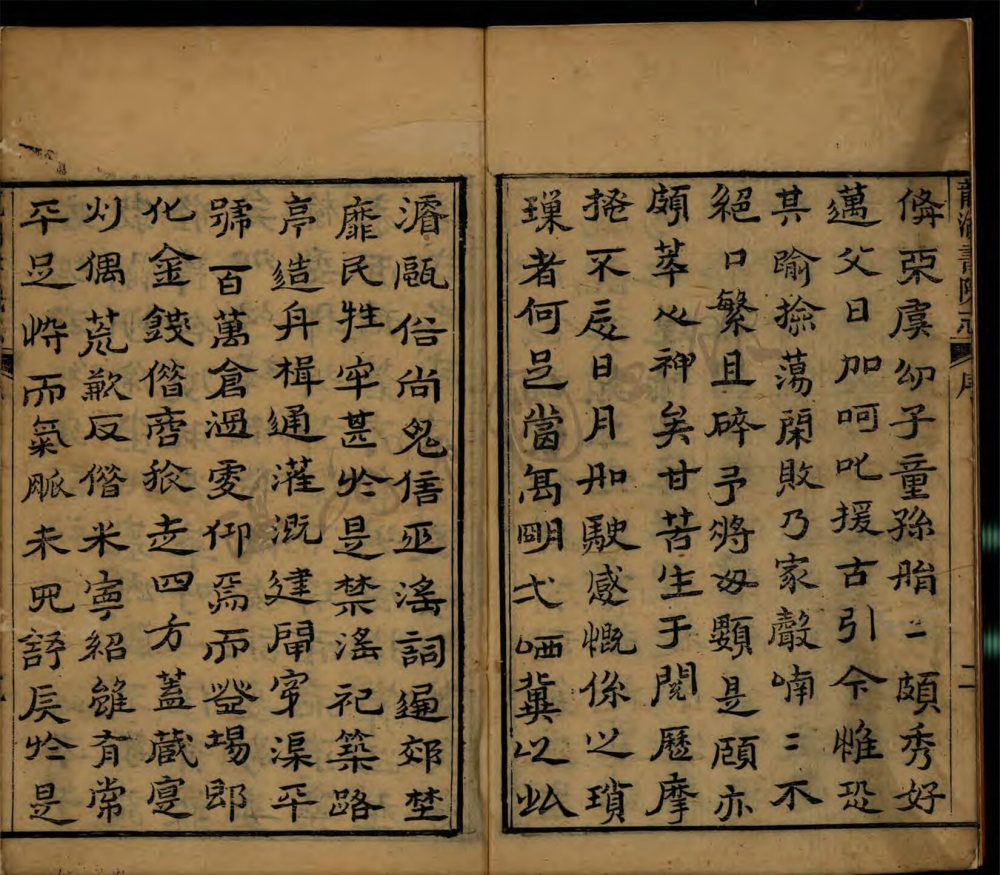 龍湖書院志 序 二
亞虞幼子童孫胎二頗秀好
邁父日加呵叱援古引今惟恐
其踰撿蕩閑敗乃家聲喃二不
絕口繁且碎予將毋顥是頤亦
頗萃心神矣甘苦生于閱歷摩
捲不辰日月如駛感慨係之瑣
璅者何足當高明弌哂冀以此
濬甌俗尚鬼信巫滛詞遍郊埜
靡民牲牢甚於是禁滛祀築路
亭造舟楫通灌溉建閘穿渠平
號百萬倉過處仰焉而登場郎
化金錢僭商販走四方蓋藏寔
少偶荒歉反僭米寧紹雖有常
平足恃而氣脈未免舒辰於是